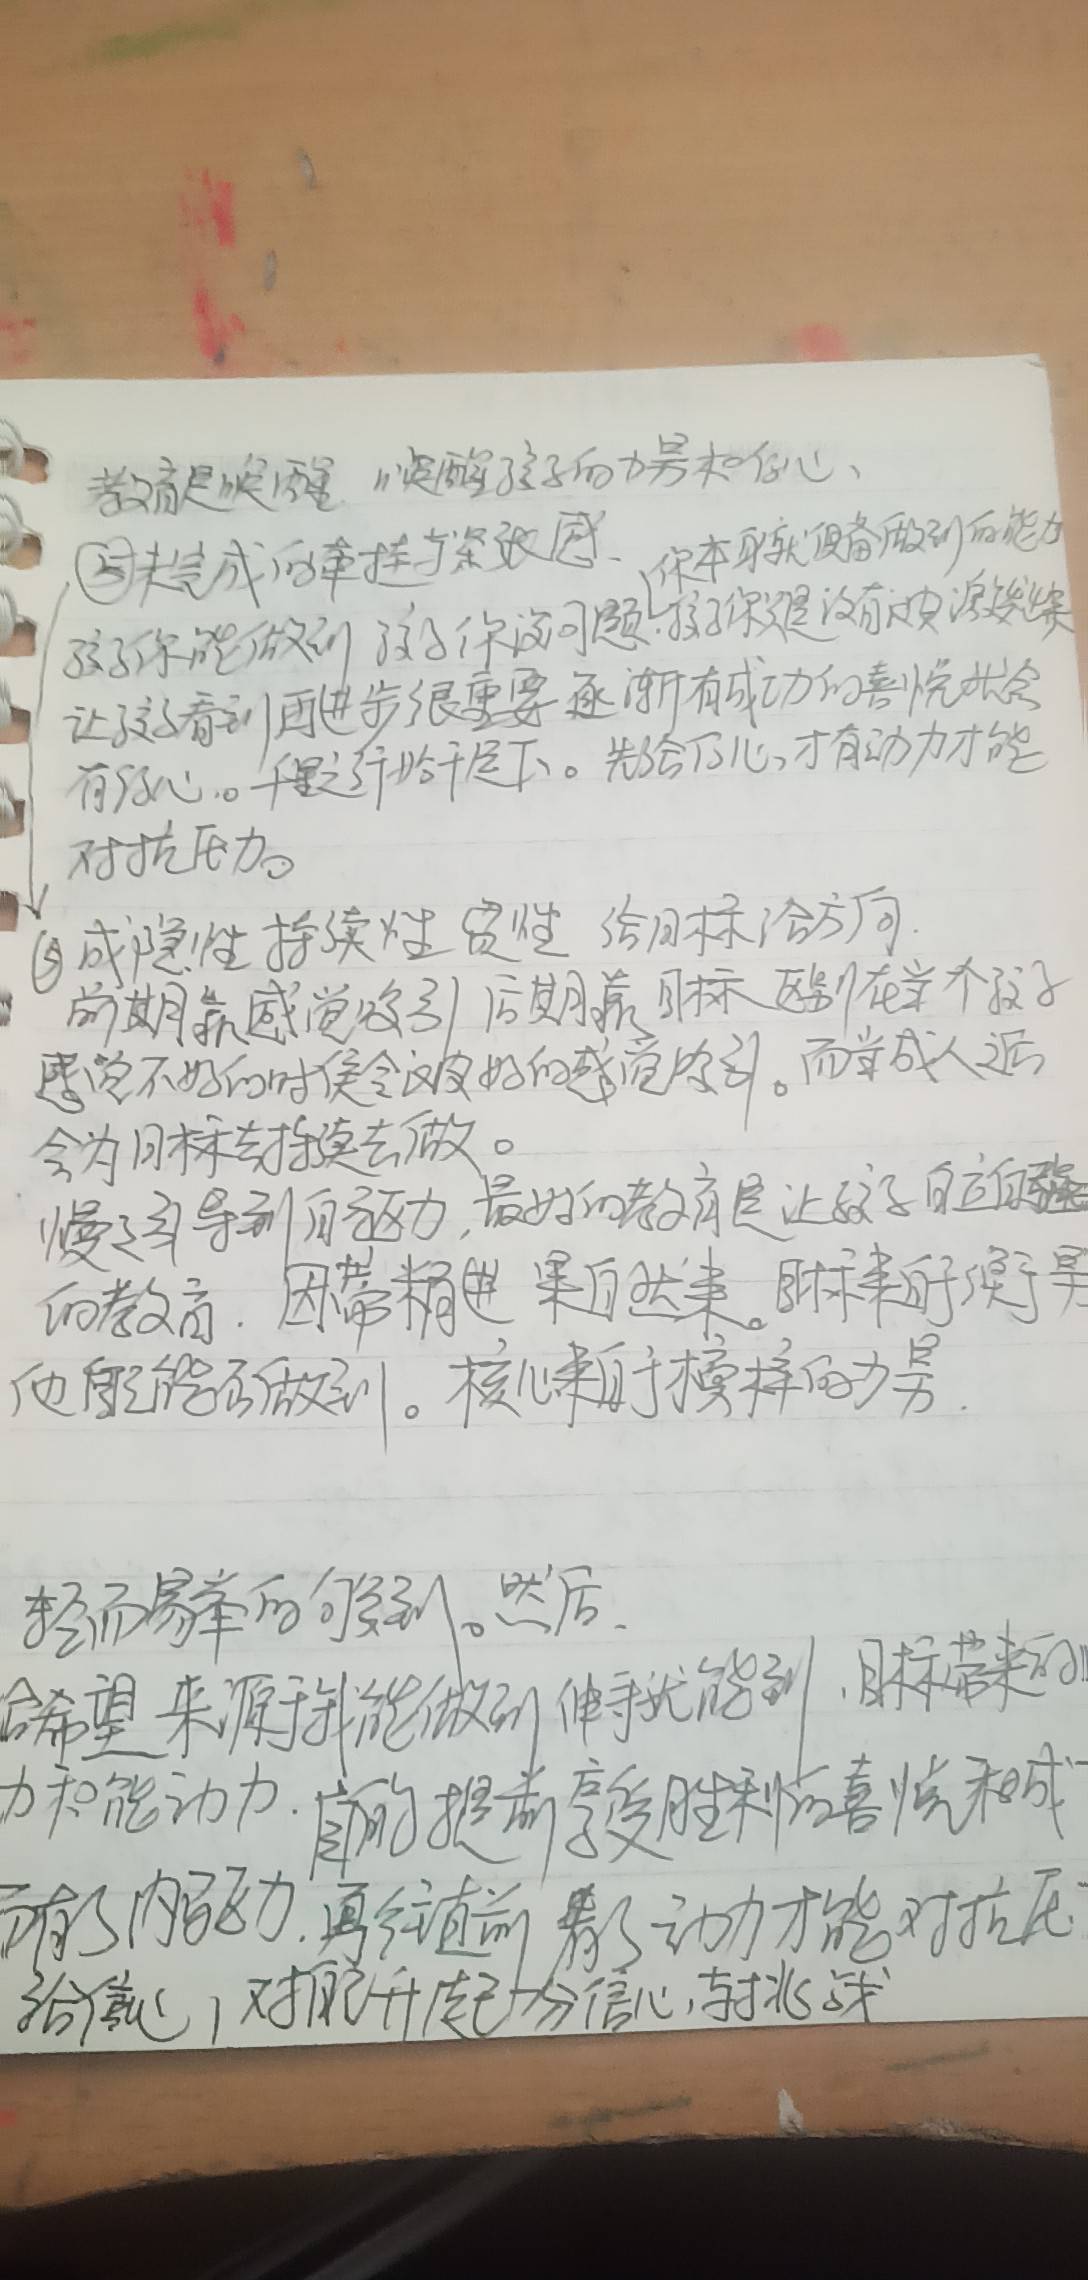 教育是唤醒 唤醒孩子的力量和信心、
⑤未完成的牵挂与紧张感、
你本身就设备做到的能力
孩子你能做到 孩子你没问题 孩子你只是没有被激发出来
让孩子看到再进步很重要 逐渐有成功的喜悦 就会
有信心。千里之行始于足下。先给信心、才有动力才能
对抗压力。
⑥成隐性 持续性 惯性 给目标给方向.
前期靠感觉吸引 后期靠目标 区别在当个孩子
感觉不好的时候会被更好的感觉吸引。而当成人之后
会为目标去持续去做。
慢慢引导到自驱力, 最好的教育是让孩子自立自强
的教育. 因带精进 果自然来。目标来自于
他自己能否做到。核心来自于榜样的力量.
轻而易举的够到。然后.
给希望 来源于我能做到 伸手就能到, 目标带来的
力和能动力. 提前享受胜利的喜悦和成
有了内驱力. 再往直前 有了动力才能对抗压
给信心, 对 升起 信心, 挑战